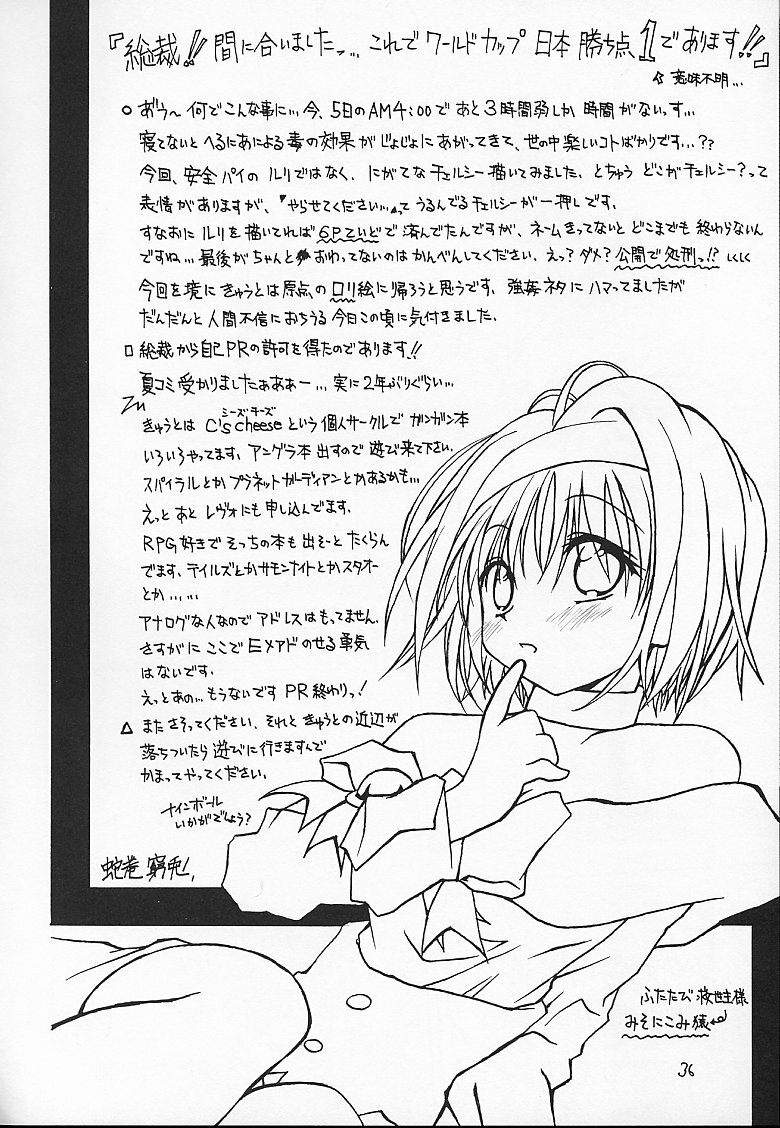 『総裁!! 間に合いましたッ… これで ワールドカップ 日本 勝ち点1であります!!』
意味不明…
○ あうー 何でこんな事に… 今、5日のAM4:00であと3時間弱しか 時間がないっす…
寝てないと へるにあによる毒の効果が じょじょにあがってきて、世の中楽しいコトばかりです…??
今回、安全パイの ルリではなく、にがてなチェルシー描いてみました、とちゅう どこがチェルシー?って
表情がありますが、『やらせてください…』って うるんでるチェルシーが一押しです。
すなおに ルリを描いてれば 6Pていどで済んでたんですが、ネームきってないと どこまでも終わらないん
ですね… 最後がちゃんと おわってないのは かんべんしてください、えっ? ダメ? 公開で処刑っ!?
今回を境に きゅうとは原点のロリ絵に帰ろうと思うです、強姦ネタに ハマってましたが
だんだんと人間不信におちいる今日この頃に気付きました.
□ 総裁から自己PRの許可を得たのであります!!
夏コミ受かりましたぁあぁー… 実に2年ぶりぐらい…
シーズ・チーズ
きゅうとは C'scheese という個人サークルで ガンガン本
いろいろやってます、アングラ本 出すので遊び来て下さい、
スパイラルとか プラネットガーディアンとかあるかも…
えっと あと レヴォにも申し込んでます。
RPG好きで そっちの本も出そーと たくらん
でます、テイルズとかサモンナイトとかスタオー
とか……
アナログな人なので アドレスはもってません、
さすがに ここで Eメアドのせる勇気
はないです.
えっとあの… もうないです PR終わりっ!
△ また さそってください、それと きゅうとの近辺が
落ちついたら遊びに行きますんで
かまってやってください。
ナインボール
いかがでしょう?
蛇巻 窮兎
ふたたび 救世主様
みそにこみ猿
36